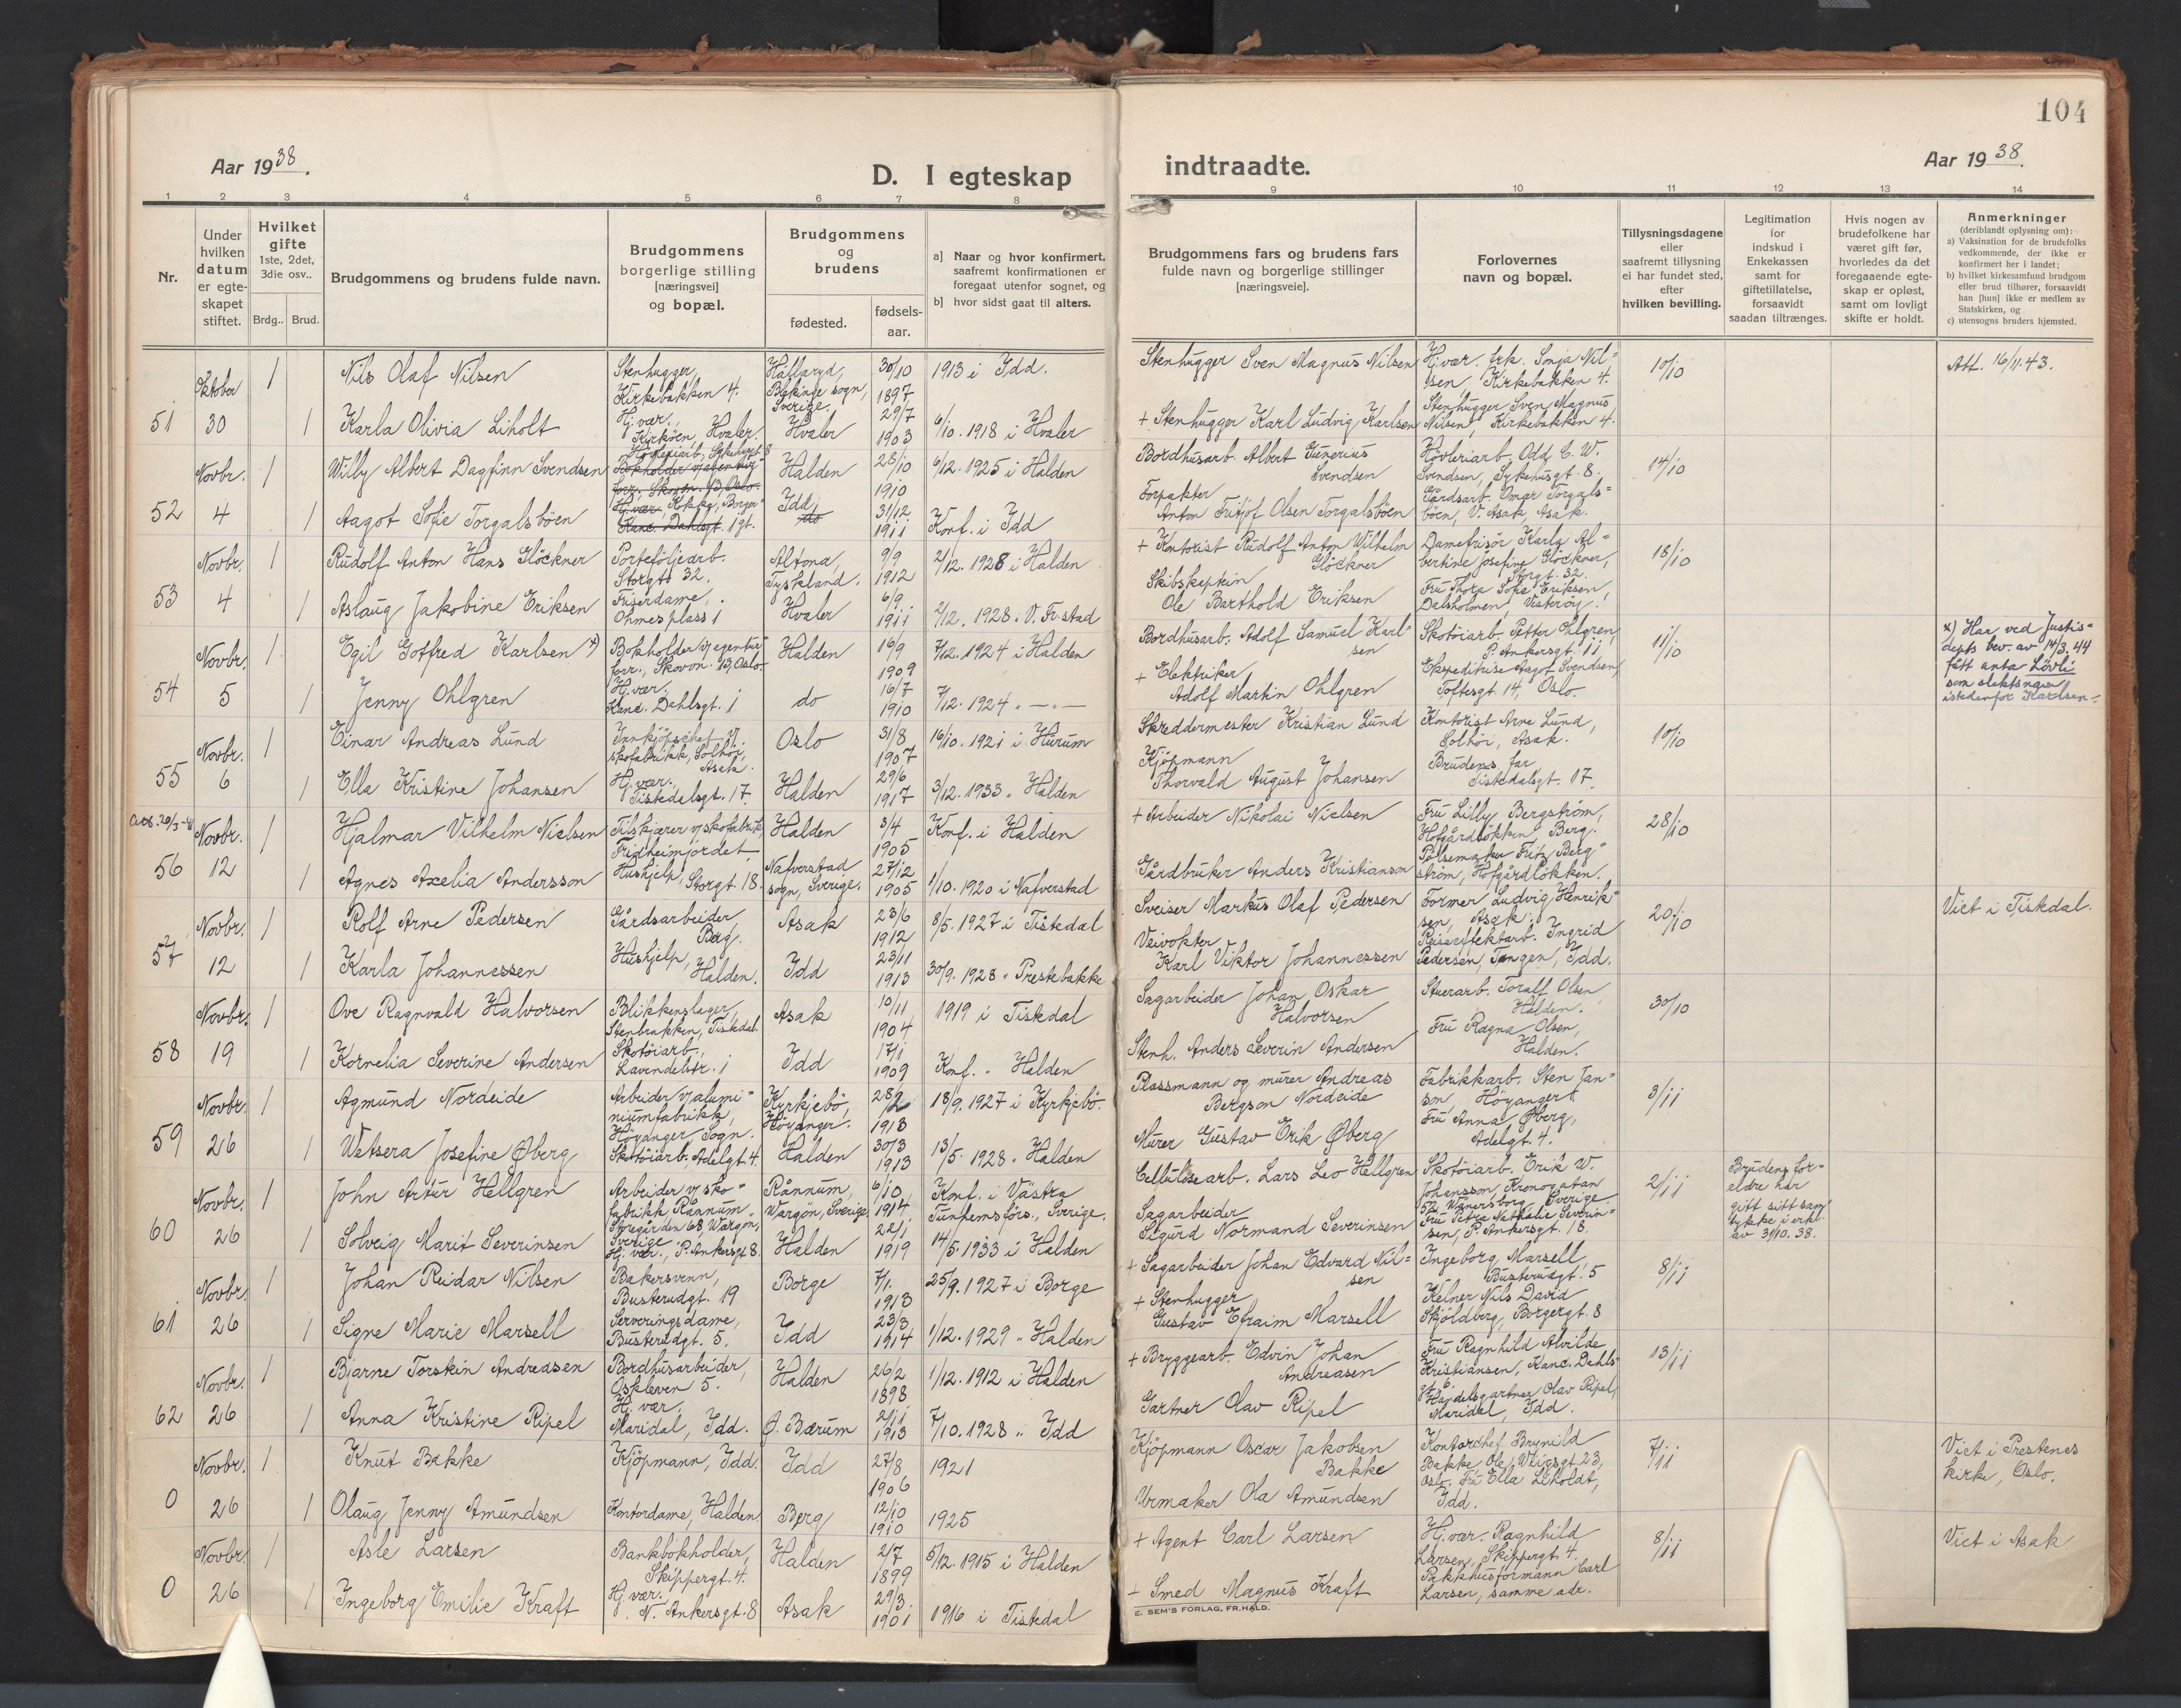 104
Aar 1938.
D. I egteskap
indtraadte.
Aar 1938.
1 2 3 4 5 6 7 8 9 10 11 12 13 14
Nr.
Under hvilken datum er egteskapet stiftet.
Hvilket gifte 1ste, 2det, 3die osv..
Brdg.. Brud.
Brudgommens og brudens fulde navn.
Brudgommens borgerlige stilling [næringsvei] og bopæl.
Brudgommens og brudens
fødested.
fødselsaar.
a] Naar og hvor konfirmert, saafremt konfirmationen er foregaat utenfor sognet, og
b] hvor sidst gaat til alters.
Brudgommens fars og brudens fars fulde navn og borgerlige stillinger [næringsveie].
Forlovernes navn og bopæl.
Tillysningsdagene eller saafremt tillysning ei har fundet sted, efter hvilken bevilling.
Legitimation for indskud i Enkekassen samt for giftetillatelse, forsaavidt saadan tiltrænges.
Hvis nogen av brudefolkene har været gift før, hvorledes da det foregaaende egteskap er opløst, samt om lovligt skifte er holdt.
Anmerkninger
(deriblandt oplysning om):
a) Vaksination for de brudefolks vedkommende, der ikke er konfirmert her i landet;
b) hvilket kirkesamfund brudgom eller brud tilhører, forsaavidt han [hun] ikke er medlem av Statskirken, og
c) utensogns bruders hjemsted.
Oktober 1 Nils Olaf Nilsen Stenhugger, Kirkebakken 4. Hallaryd, Blekinge sogn, Sverige. 30/10 1897 1913 i Idd. Stenhugger Sven Magnus Nilsen Hj.vær. frk. Sonja Nilsen, Kirkebakken 4. 10/10 Att. 16/11.43.
51 30 1 Karla Olivia Liholt Hj.vær. Kirköen, Hvaler Hvaler 29/7 1903 6/10. 1918 i Hvaler + Stenhugger Karl Ludvig Karlsen Stenhugger Sven Magnus Nilsen, Kirkebakken 4.
Novbr. 1 Willy Albert Dagfinn Svendsen Høvleriarb., Sykehusgt. 8 Bokholder v/ agentur forr., Skovvn. 13, Oslo. Halden 28/10 1910 6/12. 1925 i Halden Bordhusarb. Albert Gunerius Svendsen Høvleriarb. Odd C. W. Svendsen, Sykehusgt. 8. 14/10
52 4 1 Aagot Sofie Torgalsböen Hj.vær. Kokke, Borger- Kanc. Dahlsgt. 1 gt. Idd do 31/12 1911 Konf. i Idd Forpakter Anton Fritjof Olsen Torgalsböen Gårdsarb. Omar Torgalsböen, V. Asak, Asak.
Novbr. 1 Rudolf Anton Hans Glöckner Porteföljearb. Storgt. 32. Altona, Tyskland. 9/9 1912 2/12. 1928 i Halden + Kontorist Rudolf Anton Wilhelm Glöckner Damefrisör Karla Albertine Josefine Glöckner, Storgt. 32. 18/10
53 4 1 Aslaug Jakobine Eriksen Friserdame, Ohmes plass 1 Hvaler 6/9 1911 2/12. 1928 i V. Fr.stad Skibskaptein Ole Barthold Eriksen Fru Thora Sofie Eriksen, Dalsholmen, Vesteröy.
Novbr. 1 Egil Gotfred Karlsen x) Bokholder v/ agentur forr., Skovvn. 13, Oslo Halden 16/9 1909 7/12. 1924 i Halden Bordhusarb. Adolf Samuel Karlsen Skotöiarb. Petter Ohlgren, P. Ankersgt. 11 11/10 x) Har ved Justisdepts bev. av 14/3.44 fått anta Lövli som slektsnavn istedenfor Karlsen.
54 5 1 Jenny Ohlgren Hj.vær. Kanc. Dahlsgt. 1 do 16/7 1910 7/12. 1924 " — " — + Elektriker Adolf Martin Ohlgren Ekspeditrise Aagot Svendsen, Toftesgt. 14, Oslo
Novbr. 1 Einar Andreas Lund Innkjöpschef v/ skofabrikk, Solhöi, Asak. Oslo 31/8 1907 16/10. 1921 i Hurum Skreddermester Kristian Lund Kontorist Arne Lund, Solhöi, Asak. 10/10
55 6 1 Ella Kristine Johansen Hj.vær. Tistedalsgt. 17. Halden 29/6 1917 3/12. 1933 " Halden Kjøpmann Thorvald August Johansen Brudens far, Tistedalsgt. 17.
Att. 20/3-41 Novbr. 1 Hjalmar Vilhelm Nielsen Tilskjærer v/ skofabrik, Fridheimjordet Halden 3/4 1905 Konf. i Halden + Arbeider Nikolai Nielsen Fru Lilly Bergström, Hofgårdlökken, Berg. 28/10
56 12 1 Agnes Axelia Andersson Hushjelp, Storgt. 18. Nafverstad sogn, Sverige. 27/12 1905 1/10. 1920 i Nafverstad Gårdbruker Anders Kristianson Pölsemaker Fritz Bergström, Hofgårdlökken.
Novbr. 1 Rolf Arne Pedersen Gårdsarbeider, Berg. Asak 23/6 1912 8/5. 1927 i Tistedal Sveiser Markus Olaf Pedersen Former Ludvig Henriksen, Asak. 20/10 Viet i Tistedal.
57 12 1 Karla Johannessen Hushjelp, Halden. Idd 23/11 1913 30/9. 1928 " Prestebakke Veivokter Karl Viktor Johannessen Reiseeffektarb. Ingrid Pedersen, Tangen, Idd.
Novbr. 1 Ove Ragnvald Halvorsen Blikkenslager, Stenbrakken, Tistedal. Asak 10/11 1904 1919 i Tistedal Sagarbeider Johan Oskar Halvorsen Stuerarb. Toralf Olsen, Halden. 30/10
58 19 1 Kornelia Severine Andersen Skotöiarb., Lavendelstr. 1 Idd 17/1 1909 Konf. " Halden Stenh. Anders Severin Andersen Fru Ragna Olsen, Halden.
Novbr. 1 Agmund Nordeide Arbeider v/ aluminiumfabrikk, Höyanger Sogn. Kyrkjebö, Höyanger. 28/2 1913 18/9. 1927 i Kyrkjebö. Plassmann og murer Andreas Bergson Nordeide Fabrikkarb. Sten Janson, Höyanger. 3/11
59 26 1 Watsera Josefine Øberg Skotöiarb. Adelgt. 4. Halden 30/3 1913 13/5. 1928 " Halden Murer Gustav Erik Øberg Fru Anna Øberg, Adelgt. 4.
Novbr. 1 John Artur Hellgren Arbeider v/ skofabrikk Rånnum, Storegården 68, Wargön, Sverige Rånnum, Wargön, Sverige 6/10 1914 Konf. i Västra Tunhemsförs., Sverige. Cellulosearb. Lars Leo Hellgren Skotöiarb. Erik W. Johansson, Kronogatan 52, Wänersborg, Sverige 2/11 Brudens foreldre har gitt sitt samtykke i erkl. av 31/10. 38.
60 26 1 Solveig Marit Severinsen Hj. vær., P. Ankersgt 8. Halden 22/1 1919 14/5. 1933 i Halden Sagarbeider Sigurd Normand Severinsen Fru Petra Nathalie Severinsen, P. Ankersgt. 18.
Novbr. 1 Johan Reidar Nilsen Bakersvenn, Busterudgt. 19 Borge 7/1. 1913 25/9. 1927 i Borge + Sagarbeider Johan Edvard Nilsen Ingeborg Marsell, Busterudgt. 5 8/11
61 26 1 Signe Marie Marsell Serveringsdame, Busterudgt. 5. Idd 23/3 1914 1/12. 1929 " Halden + Stenhugger Gustav Efraim Marsell Kelner Nils David Skjöldberg, Borgergt. 8
Novbr. 1 Bjarne Torstein Andreasen Bordhusarbeider, Oskleven 5. Halden 26/2 1898 1/12. 1912 i Halden + Bryggearb. Edvin Johan Andreasen Fru Ragnhild Alvilde Kristiansen, Kanc. Dahlsgt. 6. 13/11
62 26 1 Anna Kristine Ripel Hj. vær. Maridal, Idd. Ø. Bærum 2/11 1913 7/10. 1928 " Idd Gartner Olav Ripel Handelsgartner Olav Ripel, Maridal, Idd.
Novbr. 1 Knut Bakke Kjöpmann, Idd. Idd 27/8 1906 1921 Kjöpmann Oscar Jakobsen Bakke Kontorchef Brynild Bakke, Ole Wiigsgt. 23, Oslo. 7/11 Viet i Prestenes kirke, Oslo.
0 26 1 Olaug Jenny Amundsen Kontordame, Halden Berg 12/10 1910 1925 Urmaker Ola Amundsen Fru Ella Liholdt, Idd.
Novbr. 1 Asle Larsen Bankbokholder, Skippergt. 4. Halden 2/7 1899 5/12. 1915 i Halden + Agent Carl Larsen Hj. vær. Ragnhild Larsen, Skippergt. 4. 8/11 Viet i Asak
0 26 1 Ingeborg Emilie Kraft Hj. vær. N. Ankersgt. 8 Asak 29/3. 1901 1916 i Tistedal + Smed Magnus Kraft Pakkhusformann Carl Larsen, samme adr.
E. SEM'S FORLAG, FR.HALD.